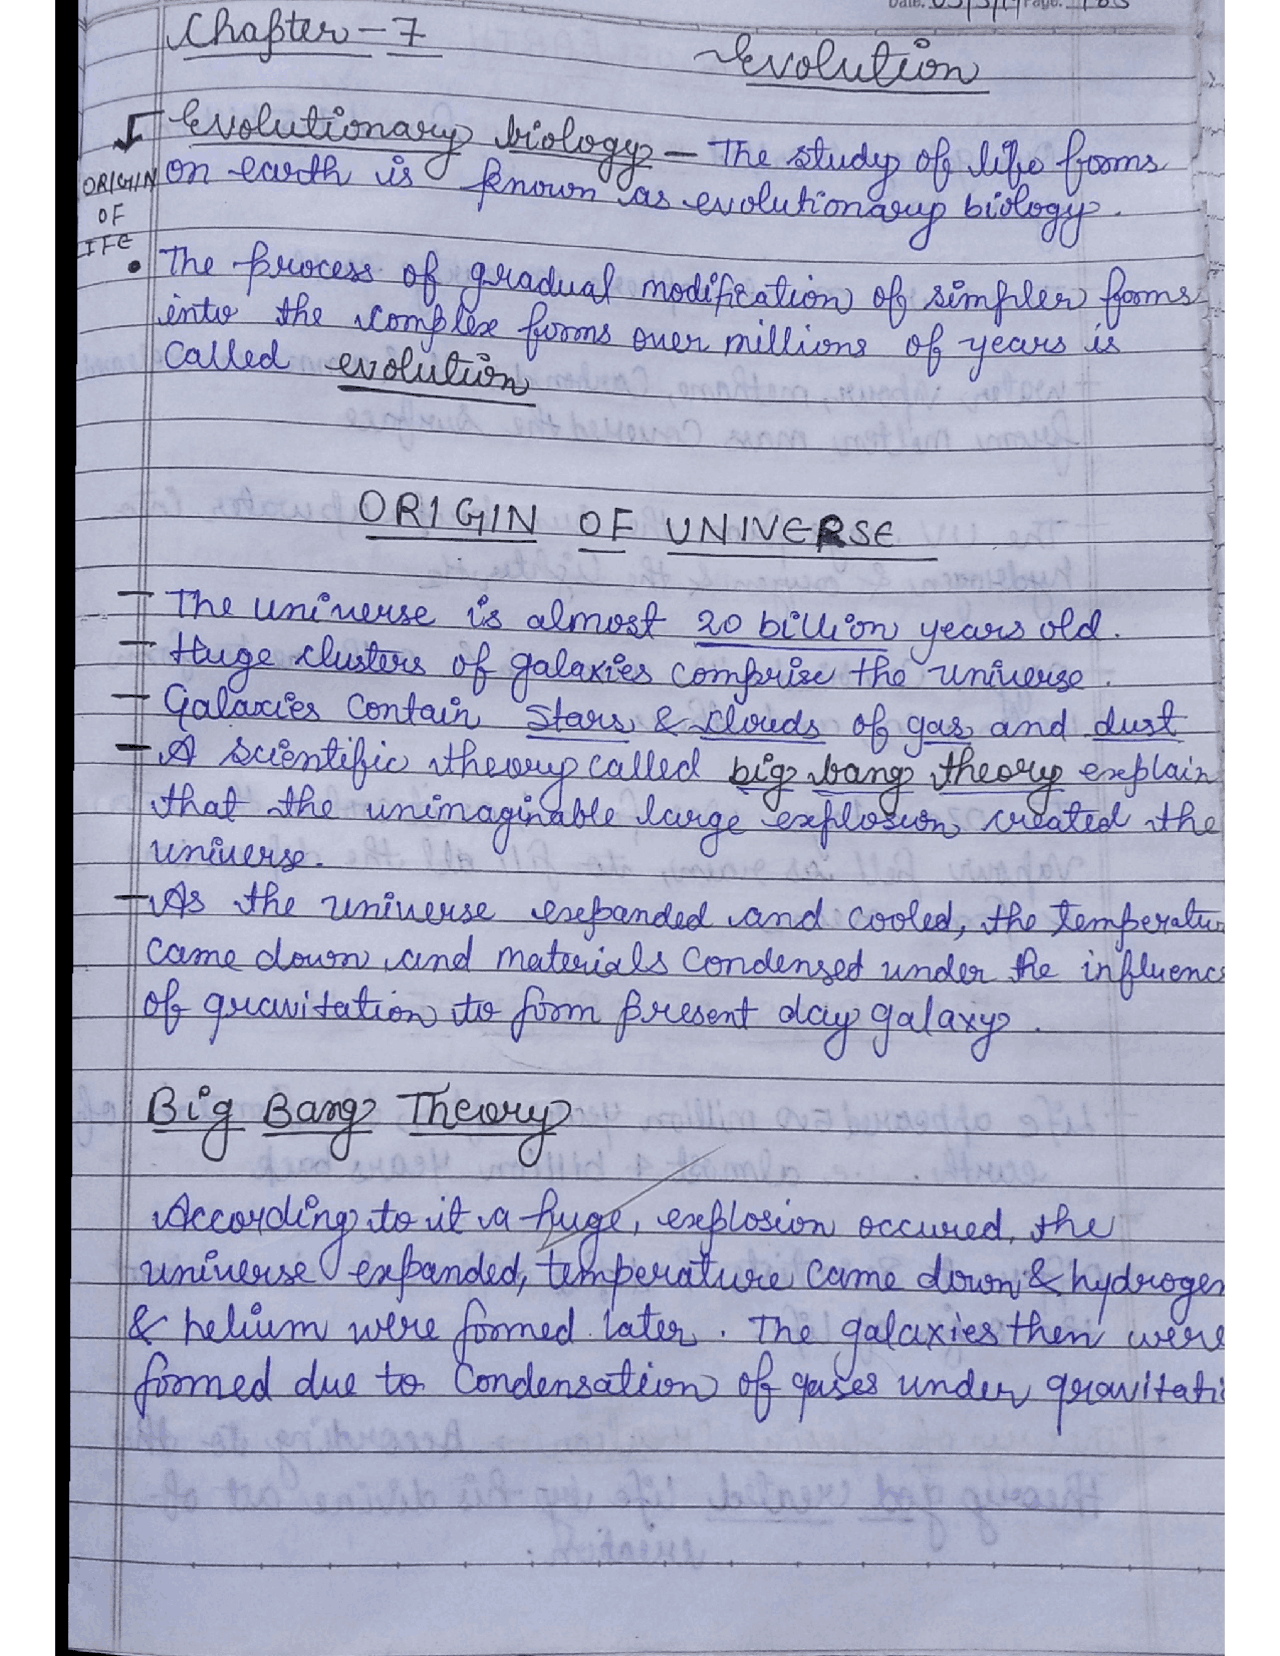 Chapter - 7
Evolution
Evolutionary biology - The study of life forms
on earth is known as evolutionary biology.
ORIGIN
OF
IFE
• The process of gradual modification of simpler forms
into the complex forms over millions of years is
called evolution
ORIGIN OF UNIVERSE
- The universe is almost 20 billion years old.
- Huge clusters of galaxies comprise the universe.
- Galaxies contain stars & clouds of gas and dust
- A scientific theory called big bang theory explain
that the unimaginable large explosion created the
universe.
- As the universe expanded and cooled, the temperatur
came down and materials condensed under the influenc
of gravitation to form present day galaxy.
Big Bang Theory
According to it a huge, explosion occured, the
universe expanded, temperature came down & hydrogen
& helium were formed later. The galaxies then were
formed due to condensation of gases under gravitati